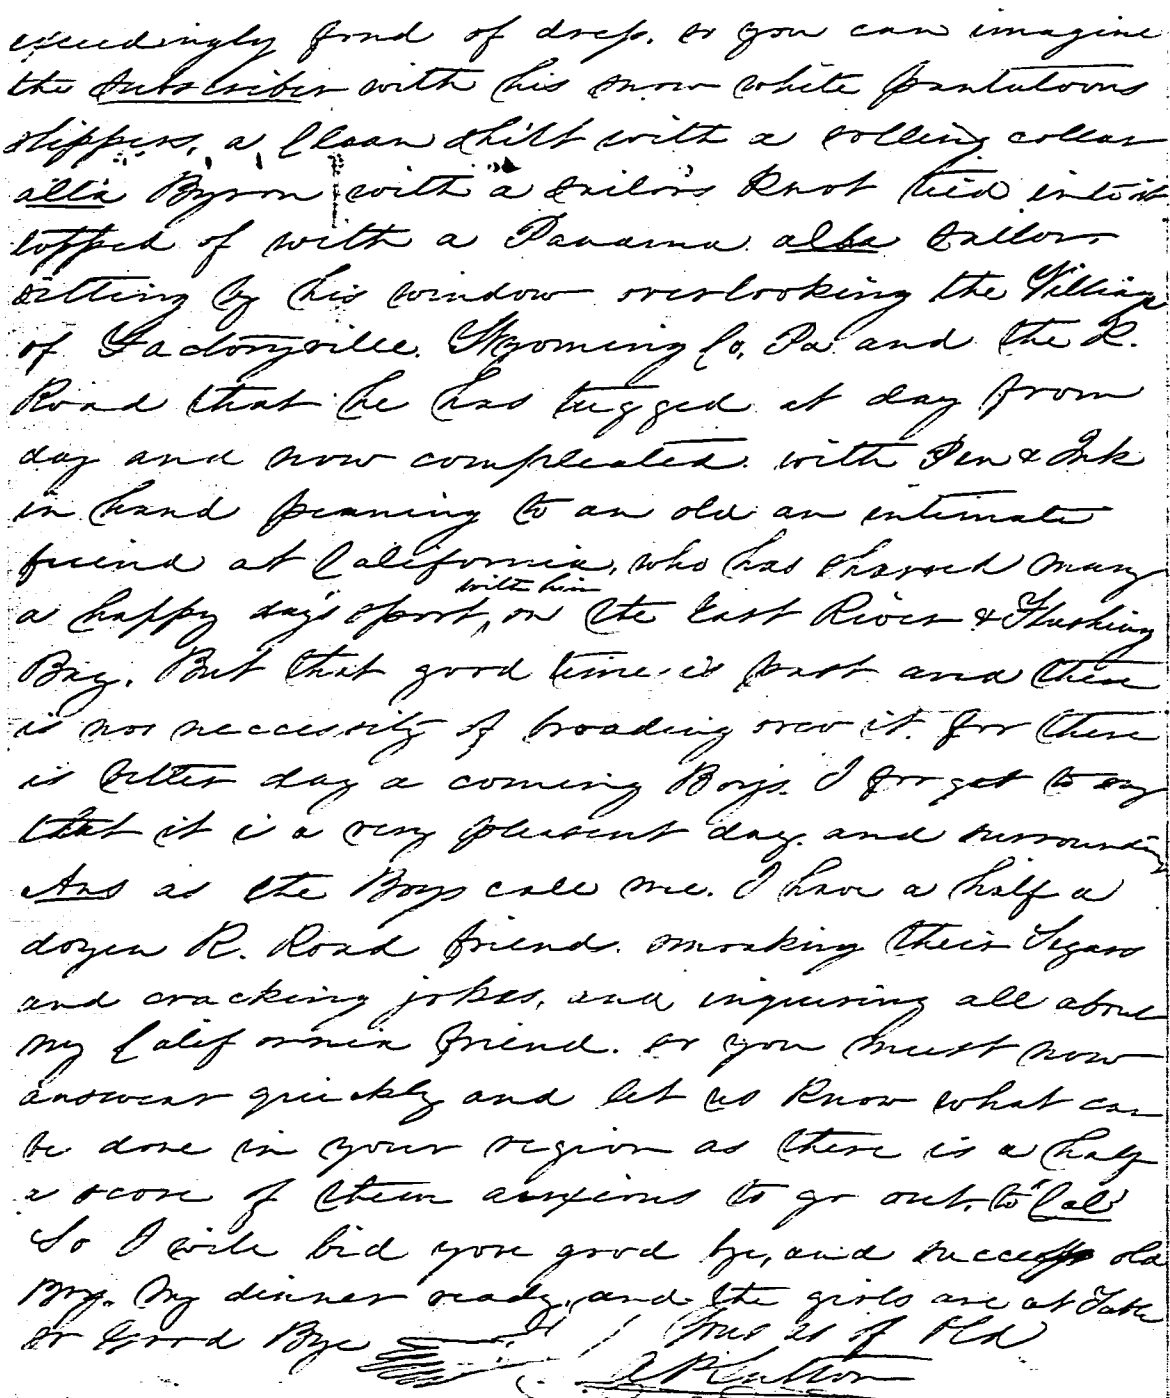 exceedingly fond of dress. so you can imagine
the Subscriber with his snow white pantaloons
slippers, a Clean shirt with a rolling collar
alla Byron with a sailors Knot tied into it
topped of with a Panama alla Sailor
sitting by his window overlooking the Village
of Factoryville. Wyoming Co, Pa and the R.
Road that he has tugged at day from
day and now compleated. with Pen & Ink
in hand penning to an old an intimate
friend at California, who has shared many
a happy day's sport, with him on the East River & Flushing
Bay. But that good time is past and there
is no neccessity of broading over it. for there
is better day a coming Boys. I forget to say
that it is a very pleasent day. and surrounding
as the Boys call me. I have a half a
dozen R. Road friend. smoaking their Segars
and cracking jokes, and inquiring all about
my California friend. so you must now
answear quickly and let us Know what can
be done in your region as there is a half
a score of them anxious to go out. to "Cal"
So I will bid you good bye, and success old
Boy. My dinner ready, and the girls are at Table
so Good Bye Yours as of Old